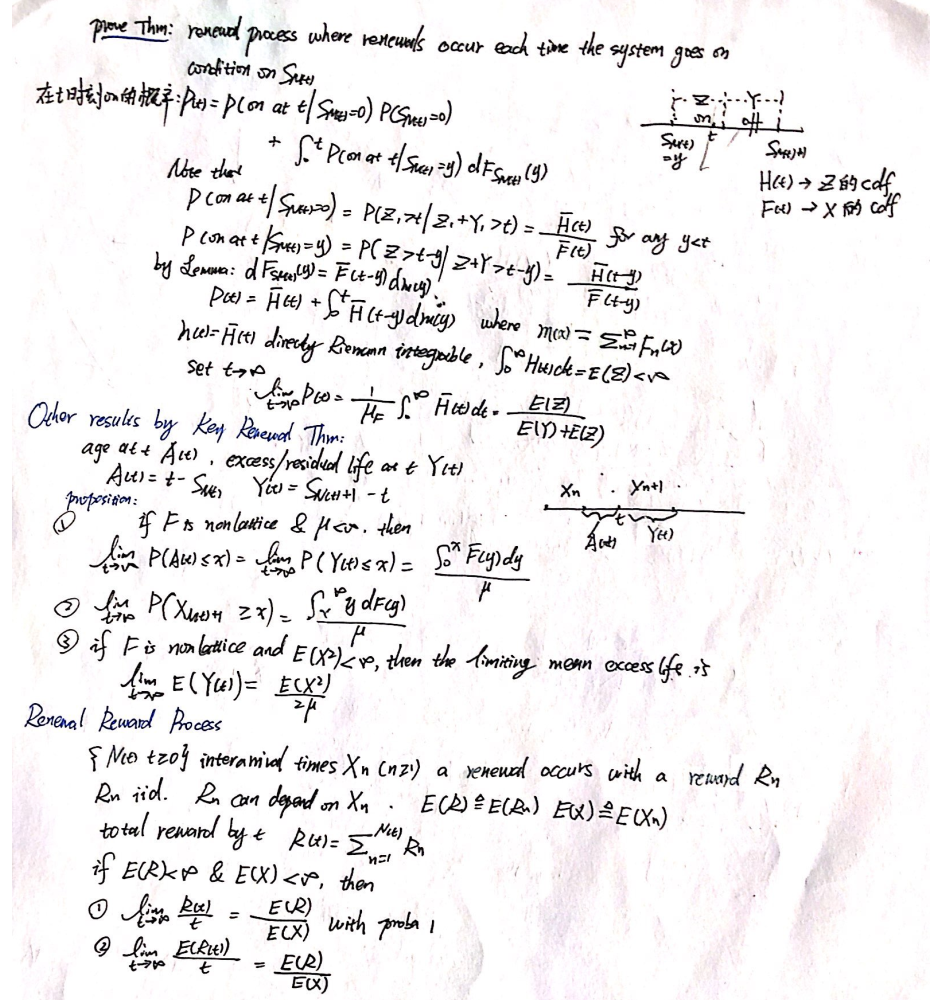 prove Thm: renewal process where renewals occur each time the system goes on
condition on S_{N(t)}
在t时刻on的概率: P(t) = P(on at t | S_{N(t)}=0) P(S_{N(t)}=0)
+ ∫_0^t P(on at t | S_{N(t)}=y) dF_{S_{N(t)}}(y)
Z Y
on off
S_{N(t)} t S_{N(t)+1}
=y
H(t) → Z的cdf
F(t) → X的cdf
Note that
P(on at t | S_{N(t)}=0) = P(Z_1>t | Z_1+Y_1>t) = H̄(t)/F̄(t) for any y<t
P(on at t | S_{N(t)}=y) = P(Z>t-y | Z+Y>t-y) = H̄(t-y)/F̄(t-y)
by Lemma: dF_{S_{N(t)}}(y) = F̄(t-y)dm(y) ∴
P(t) = H̄(t) + ∫_0^t H̄(t-y)dm(y) where m(x) = Σ_{n=1}^∞ F_n(x)
h(t)=H̄(t) directly Riemann integrable, ∫_0^∞ H(t)dt = E(Z) < ∞
set t→∞
lim_{t→∞} P(t) = 1/μ_F ∫_0^∞ H̄(t)dt = E(Z)/(E(Y)+E(Z))
Other results by Key Renewal Thm:
age at t A(t), excess/residual life at t Y(t)
A(t) = t - S_{N(t)} Y(t) = S_{N(t)+1} - t
X_n X_{n+1}
t
A(t) Y(t)
proposition:
① if F is nonlattice & μ<∞. then
lim_{t→∞} P(A(t)≤x) = lim_{t→∞} P(Y(t)≤x) = ∫_0^x F(y)dy / μ
② lim_{t→∞} P(X_{N(t)+1} ≥x) = ∫_x^∞ y dF(y) / μ
③ if F is nonlattice and E(X²)<∞, then the limiting mean excess life is
lim_{t→∞} E(Y(t)) = E(X²)/2μ
Renewal Reward Process
{N(t) t≥0} interarrival times X_n (n≥1) a renewal occurs with a reward R_n
R_n iid. R_n can depend on X_n. E(R) ≙ E(R_n) E(X) ≙ E(X_n)
total reward by t R(t) = Σ_{n=1}^{N(t)} R_n
if E(R)<∞ & E(X)<∞, then
① lim_{t→∞} R(t)/t = E(R)/E(X) with proba 1
② lim_{t→∞} E(R(t))/t = E(R)/E(X)